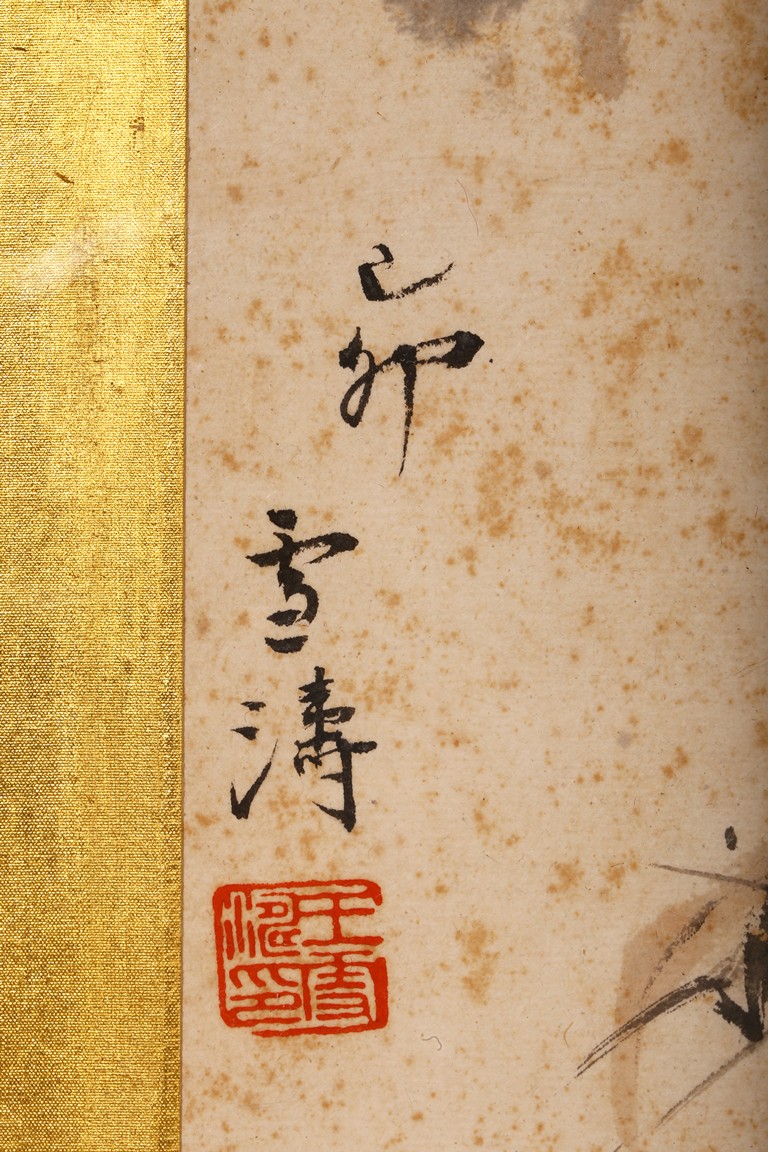 己卯
雪濤
王雪濤印